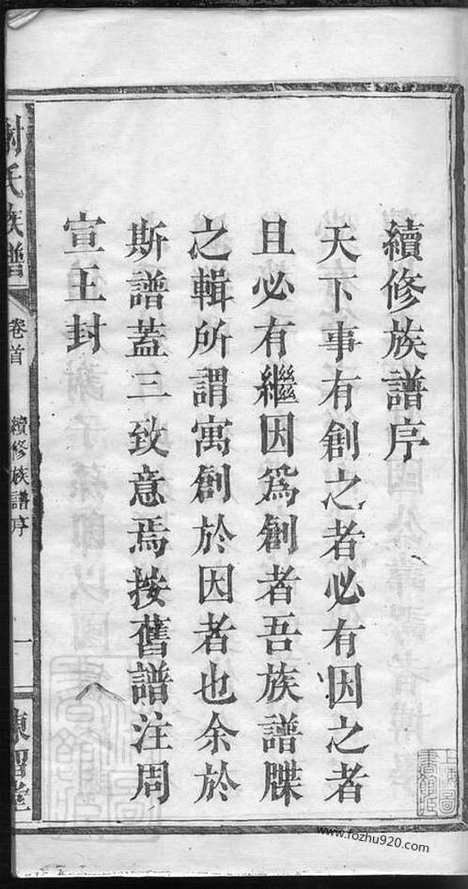 續修族譜序
天下事有創之者必有因之者
且必有繼因爲創者吾族譜牒
之輯所謂寓創於因者也余於
斯譜蓋三致意焉按舊譜注周
宣王封
氏族譜
卷首
續修族譜序
一
堂
www.fozhu920.com